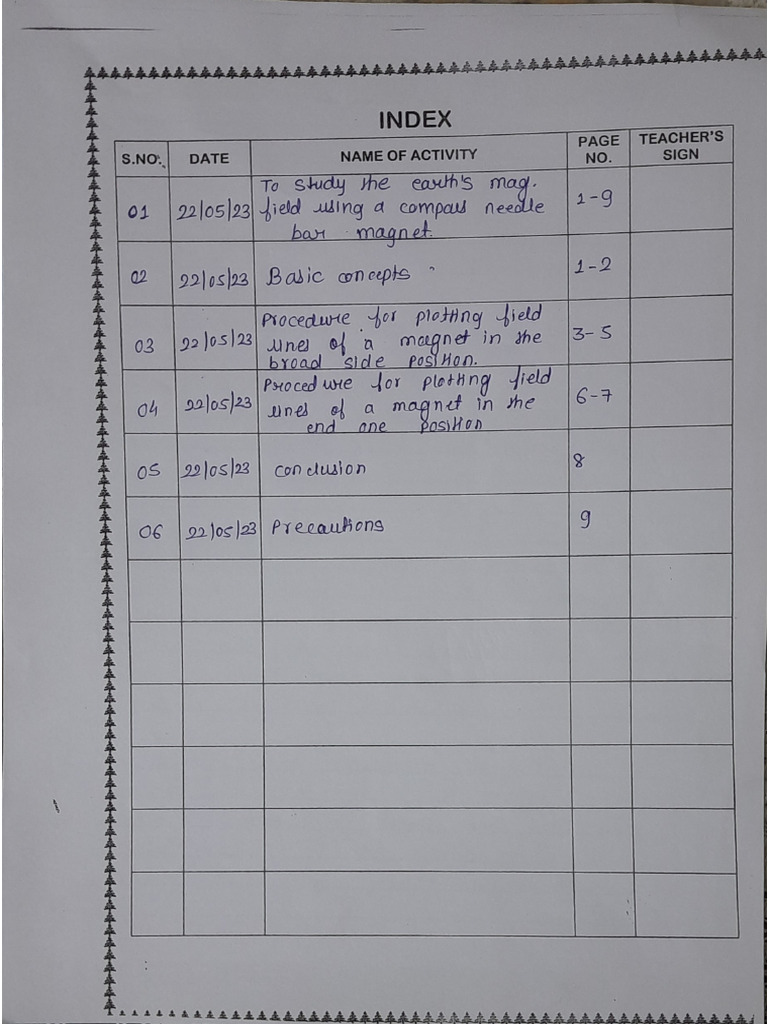 INDEX
S.NO. DATE NAME OF ACTIVITY PAGE NO. TEACHER'S SIGN
01 22/05/23 To study the earth's mag. field using a compass needle bar magnet. 1-9
02 22/05/23 Basic concepts 1-2
03 22/05/23 Procedure for plotting field lines of a magnet in the broad side position. 3-5
04 22/05/23 Procedure for plotting field lines of a magnet in the end one position 6-7
05 22/05/23 conclusion 8
06 22/05/23 Precautions 9